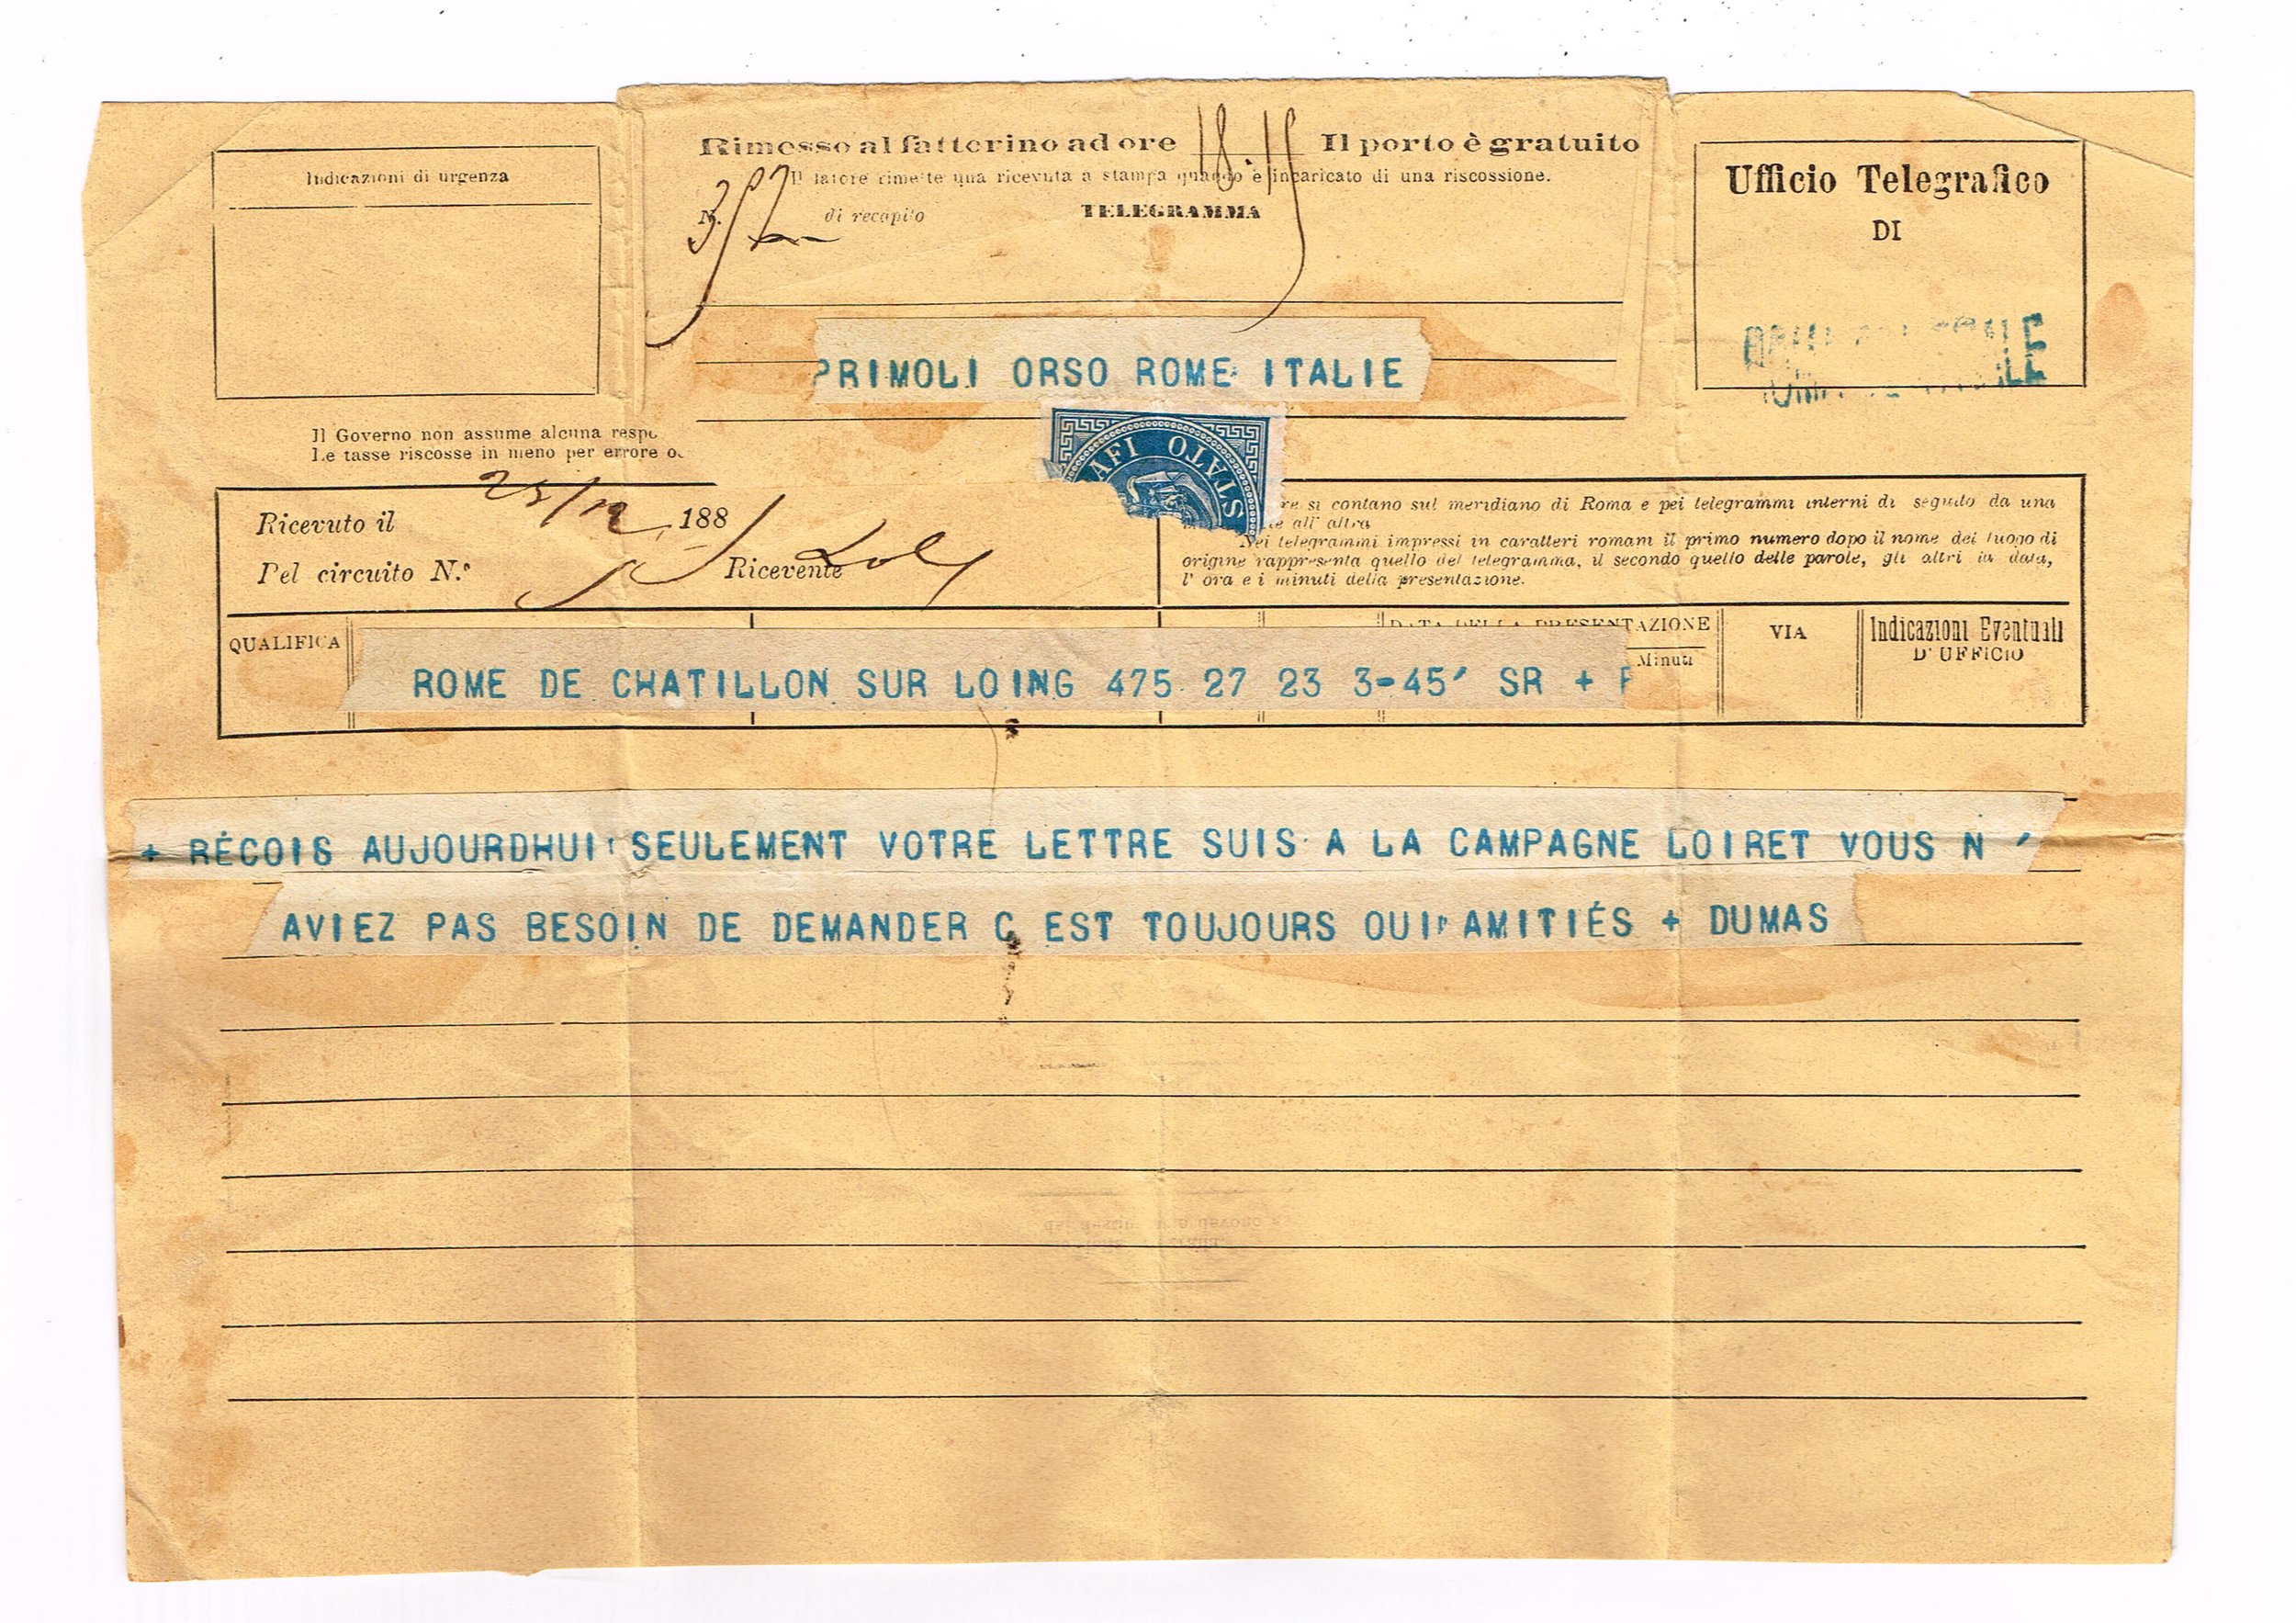 Indicazioni di urgenza
Rimesso al fattorino ad ore 18.15 Il porto è gratuito
Il latore rimette una ricevuta a stampa quando è incaricato di una riscossione.
N. di recapito TELEGRAMMA
Ufficio Telegrafico
DI
PRIMOLI ORSO ROME ITALIE
Il Governo non assume alcuna respo
Le tasse riscosse in meno per errore o
AFI STATO
Ricevuto il 188
Pel circuito N.° Ricevente
re si contano sul meridiano di Roma e pei telegrammi interni di seguito da una
all' altra
Nei telegrammi impressi in caratteri romani il primo numero dopo il nome del luogo di
origine rappresenta quello del telegramma, il secondo quello delle parole, gli altri la data,
l' ora e i minuti della presentazione.
QUALIFICA
DATA DELLA PRESENTAZIONE
Minuti
VIA
Indicazioni Eventuali
D' UFFICIO
ROME DE CHATILLON SUR LOING 475 27 23 3-45' SR +
+ RÉCOIS AUJOURDHUI SEULEMENT VOTRE LETTRE SUIS A LA CAMPAGNE LOIRET VOUS N '
AVIEZ PAS BESOIN DE DEMANDER C EST TOUJOURS OUI AMITIÉS + DUMAS